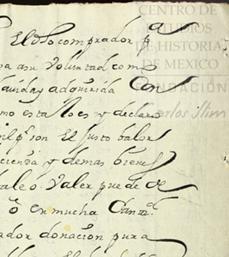 CENTRO DE
ESTUDIOS
DE HISTORIA
DE MEXICO
FUNDACIÓN
Carlos Slim
El dho comprador pa
a su Voluntad como
havida y adquirida Con
mo esta lo es y declaro
mil ps son El Justo balor
cienda y demas bienes
bale o Valer puede de
o en mucha Cantd
ador donacion pura